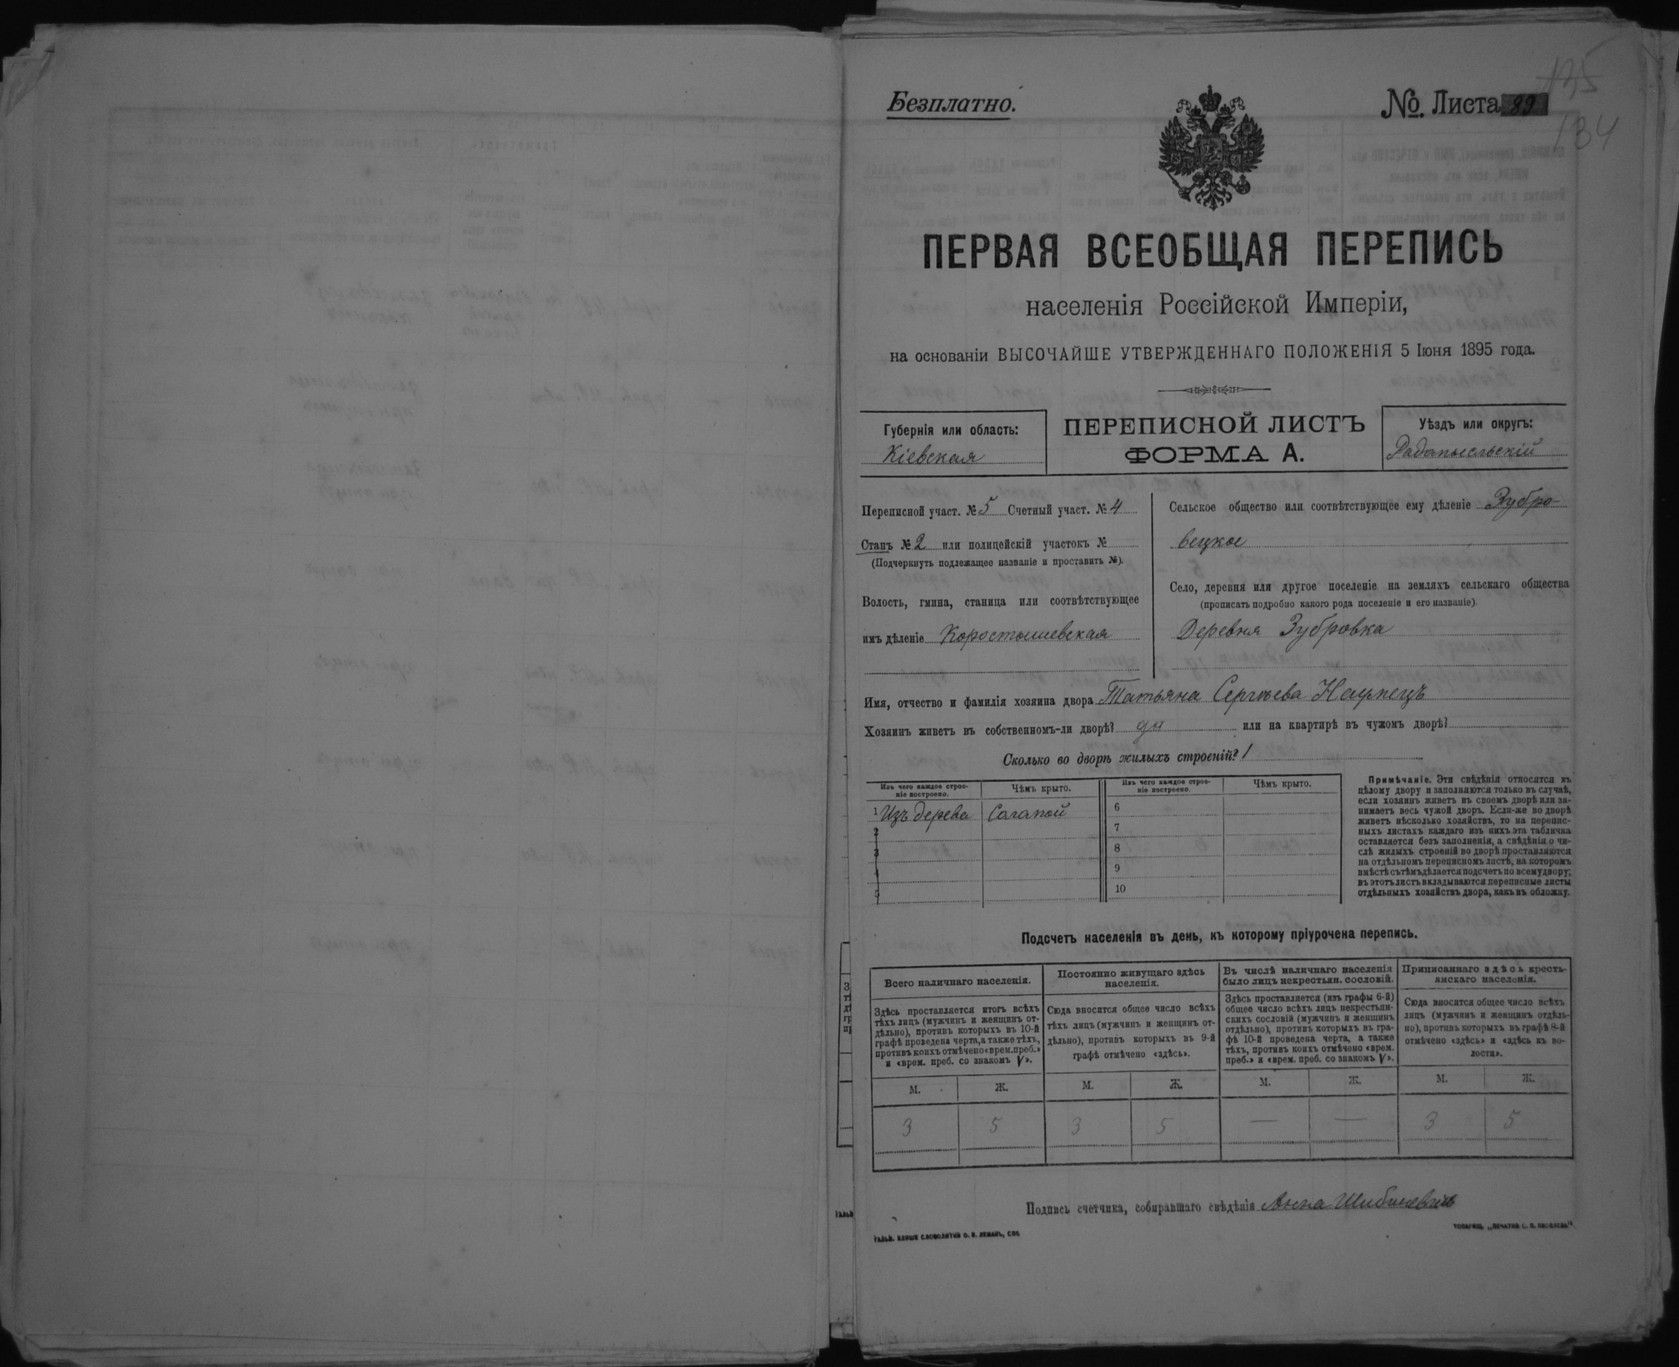 Безплатно.
№ Листа 89
135
134
ПЕРВАЯ ВСЕОБЩАЯ ПЕРЕПИСЬ
населенія Россійской Имперіи,
на основаніи ВЫСОЧАЙШЕ УТВЕРЖДЕННАГО ПОЛОЖЕНІЯ 5 Іюня 1895 года.
Губернія или область:
Кіевская
ПЕРЕПИСНОЙ ЛИСТЪ
ФОРМА А.
Уѣздъ или округъ:
Радомысльскій
Переписной участ. № 5 Счетный участ. № 4
Станъ № 2 или полицейскій участокъ №
(Подчеркнуть подлежащее названіе и проставить №).
Волость, гмина, станица или соотвѣтствующее
имъ дѣленіе Коростышевская
Сельское общество или соотвѣтствующее ему дѣленіе Зубро-
вецкое
Село, деревня или другое поселеніе на земляхъ сельскаго общества
(прописать подробно какого рода поселеніе и его названіе)
Деревня Зубровка
Имя, отчество и фамилія хозяина двора Татьяна Сергѣева
Хозяинъ живетъ въ собственномъ-ли дворѣ? да или на квартирѣ въ чужомъ дворѣ?
Сколько во дворѣ жилыхъ строеній? 1
Изъ чего каждое строе-
ніе построено.
Чѣмъ крыто.
Изъ чего каждое строе-
ніе построено.
Чѣмъ крыто.
1 Изъ дерева
6
2
7
3
8
4
9
5
10
Примѣчаніе. Эти свѣдѣнія относятся къ
цѣлому двору и заполняются только въ случаѣ,
если хозяинъ живетъ въ своемъ дворѣ или за-
нимаетъ весь чужой дворъ. Если-же во дворѣ
живетъ нѣсколько хозяйствъ, то на перепис-
ныхъ листахъ каждаго изъ нихъ эта табличка
оставляется безъ заполненія, а свѣдѣнія о чи-
слѣ жилыхъ строеній во дворѣ проставляются
на отдѣльномъ переписномъ листѣ, на которомъ
вмѣстѣ съ тѣмъ дѣлается подсчетъ по всему двору;
въ этотъ листъ вкладываются переписные листы
отдѣльныхъ хозяйствъ двора, какъ въ обложку.
Подсчетъ населенія въ день, къ которому пріурочена перепись.
Всего наличнаго населенія.
Здѣсь проставляется итогъ всѣхъ
тѣхъ лицъ (мужчинъ и женщинъ от-
дѣльно), противъ которыхъ въ 10-й
графѣ проведена черта, а также тѣхъ,
противъ коихъ отмѣчено «врем. преб.»
и «врем. преб. со знакомъ V».
Постоянно живущаго здѣсь
населенія.
Сюда вносится общее число всѣхъ
тѣхъ лицъ (мужчинъ и женщинъ от-
дѣльно), противъ которыхъ въ 9-й
графѣ отмѣчено «здѣсь».
Въ числѣ наличнаго населенія
было лицъ некрестьян. сословій.
Здѣсь проставляется (изъ графы 6-й)
общее число всѣхъ лицъ некрестьян-
скихъ сословій (мужчинъ и женщинъ
отдѣльно), противъ которыхъ въ гра-
фѣ 10-й проведена черта, а также
тѣхъ, противъ коихъ отмѣчено «врем.
преб.» и «врем. преб. со знакомъ V».
Приписаннаго здѣсь кресть-
янскаго населенія.
Сюда вносится общее число всѣхъ
лицъ (мужчинъ и женщинъ отдѣль-
но), противъ которыхъ въ графѣ 8-й
отмѣчено «здѣсь» и «здѣсь въ во-
лости».
М. Ж. М. Ж. М. Ж. М. Ж.
3 5 3 5 — — 3 5
Подпись счетчика, собиравшаго свѣдѣнія Анна